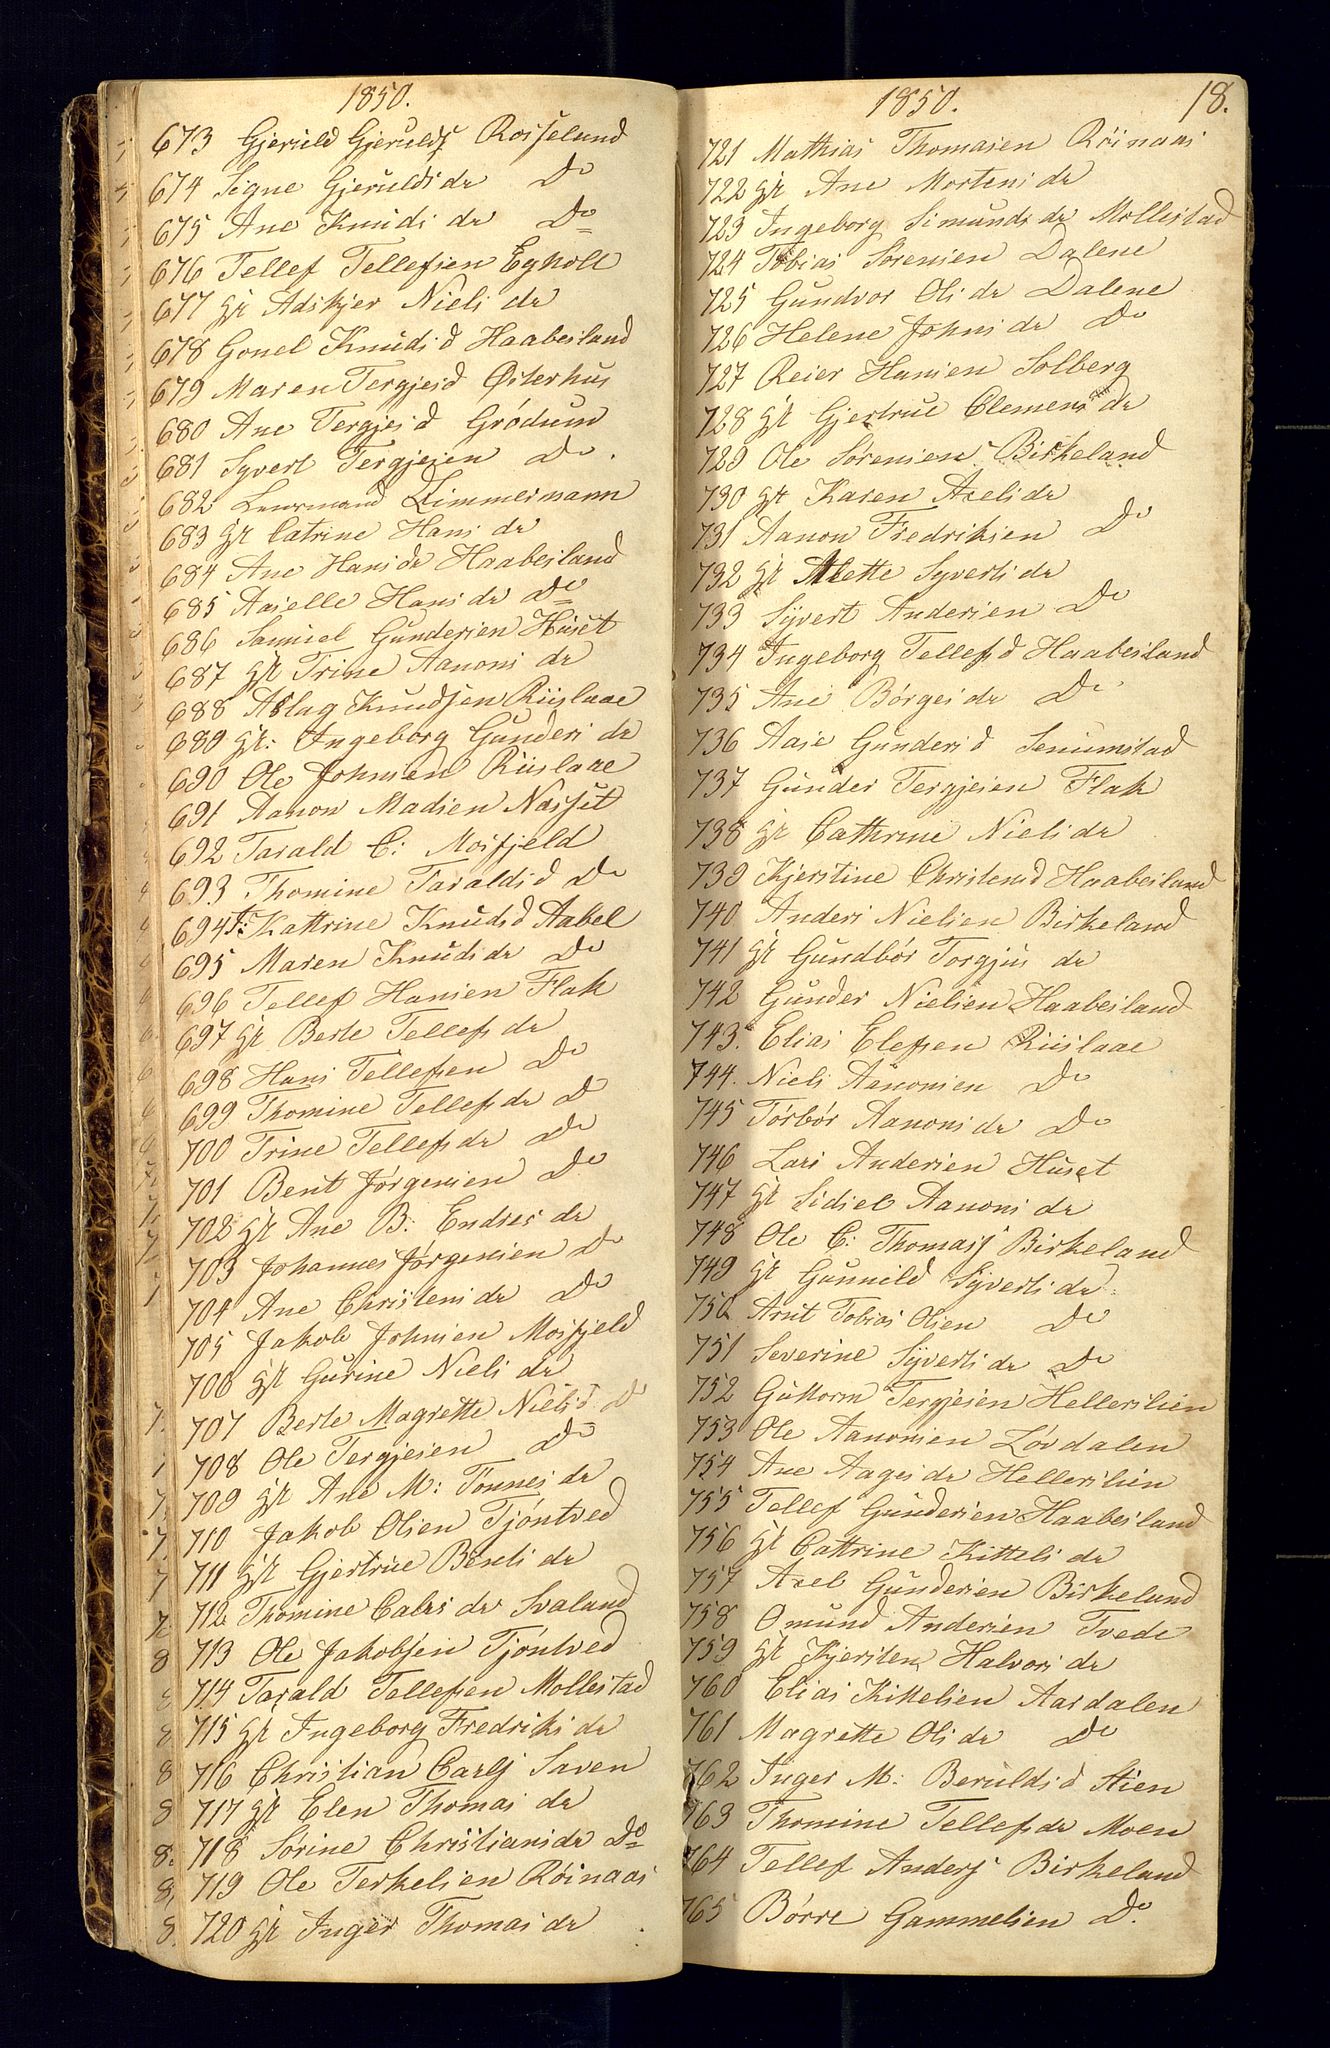 1850.
673 Gjeruld Gjerulds Rosseland
674 Signe Gjeruldsdr Do
675 Ane Knudsdr Do
676 Tellef Tellefsen Egholt
677 gt Adskjer Nielsdr
678 Gonel Knudsd Haabesland
679 Maren Tergjesd Østerhus
680 Ane Tergjesd Grødum
681 Syvert Tergjesen Do.
682 Lensmand Zimmermann
683 gt Catrine Hansdr
684 Ane Hansdr Haabesland
685 Aaselle Hansdr Do
686 Samuel Gundersen Huset
687 gt Trine Aanonsdr
688 Aslag Knudsen Riislaae
689 gt: Ingeborg Gundersdr
690 Ole Johnsen Riislaae
691 Aanon Madsen Næsset
692 Tarald C: Mosfjeld
693 Thomine Taraldsd Do
694 J: Kattrine Knudsd Aabel
695 Maren Knudsdr Do
696 Tellef Hansen Flak
697 gt Berte Tellefsdr
698 Hans Tellefsen Do
699 Thomine Tellefsdr D
700 Trine Tellefsdr Do
701 Bent Jørgensen Do
702 gt Ane B: Endresdr
703 Johannes Jørgensen Do
704 Ane Christensdr Do
705 Jakob Johnsen Mosfjeld
706 gt Gurine Nielsdr
707 Berte Magrette Nielsd D
708 Ole Tergjesen Do
709 gt Ane M: Tønnesdr
710 Jakob Olsen Tjøntved
711 gt Gjertrue Bentsdr
712 Thomine Calesdr Svaland
713 Ole Jakobsen Tjøntved
714 Tarald Tellefsen Mollestad
715 gt Ingeborg Fredriksdr
716 Christian Carls Saven
717 gt Elen Thomasdr
718 Sørine Christiansdr Do
719 Ole Terkelsen Røinaas
720 gt Inger Thomasdr
1850. 18.
721 Mathias Thomasen Røinaas
722 gt Ane Mortensdr
723 Ingeborg Simundsdr Mollestad
724 Tobias Sørensen Dalene
725 Gundvor Olsdr Dalene
726 Helene Johnsdr Do
727 Reier Hansen Solberg
728 gt Gjertrue Clemensdr
729 Ole Sørensen Birkeland
730 gt Karen Axelsdr
731 Aanon Fredriksen Do
732 gt Alette Syvertsdr
733 Syvert Andersen Do
734 Ingeborg Tellefsd Haabesland
735 Ane Børgesdr Do
736 Aase Gundersd Senumstad
737 Gunder Tergjesen Flak
738 gt Cathrine Nielsdr
739 Kjerstine Christensd Haabesland
740 Anders Nielsen Birkeland
741 gt Gundbør Torgjusdr
742 Gunder Nielsen Haabesland
743. Elias Elefsen Riislaae
744. Niels Aanonsen Do
745 Tørbør Aanonsdr Do
746 Lars Andersen Huset
747 gt Sidsel Aanonsdr
748 Ole C: Thomass Birkeland
749 gt Gunnild Syvertsdr
750 Arnt Tobias Olsen Do
751 Severine Syvertsdr Do
752 Guttorm Tergjesen Hellerslien
753 Ole Aanonsen Løvdalen
754 Ane Aagesdr Hellerslien
755 Tellef Gundersen Haabesland
756 gt Cattrine Kittelsdr
757 Axel Gundersen Birkeland
758 Omund Andersen Tvede
759 gt Kjersten Halvorsdr
760 Elias Kittelsen Aardalen
761 Magrette Olsdr Do
762 Inger M: Beruldsd Stien
763 Thomine Tellefsdr Moen
764 Tellef Anders Birkeland
765 Børre Gammelsen Do.